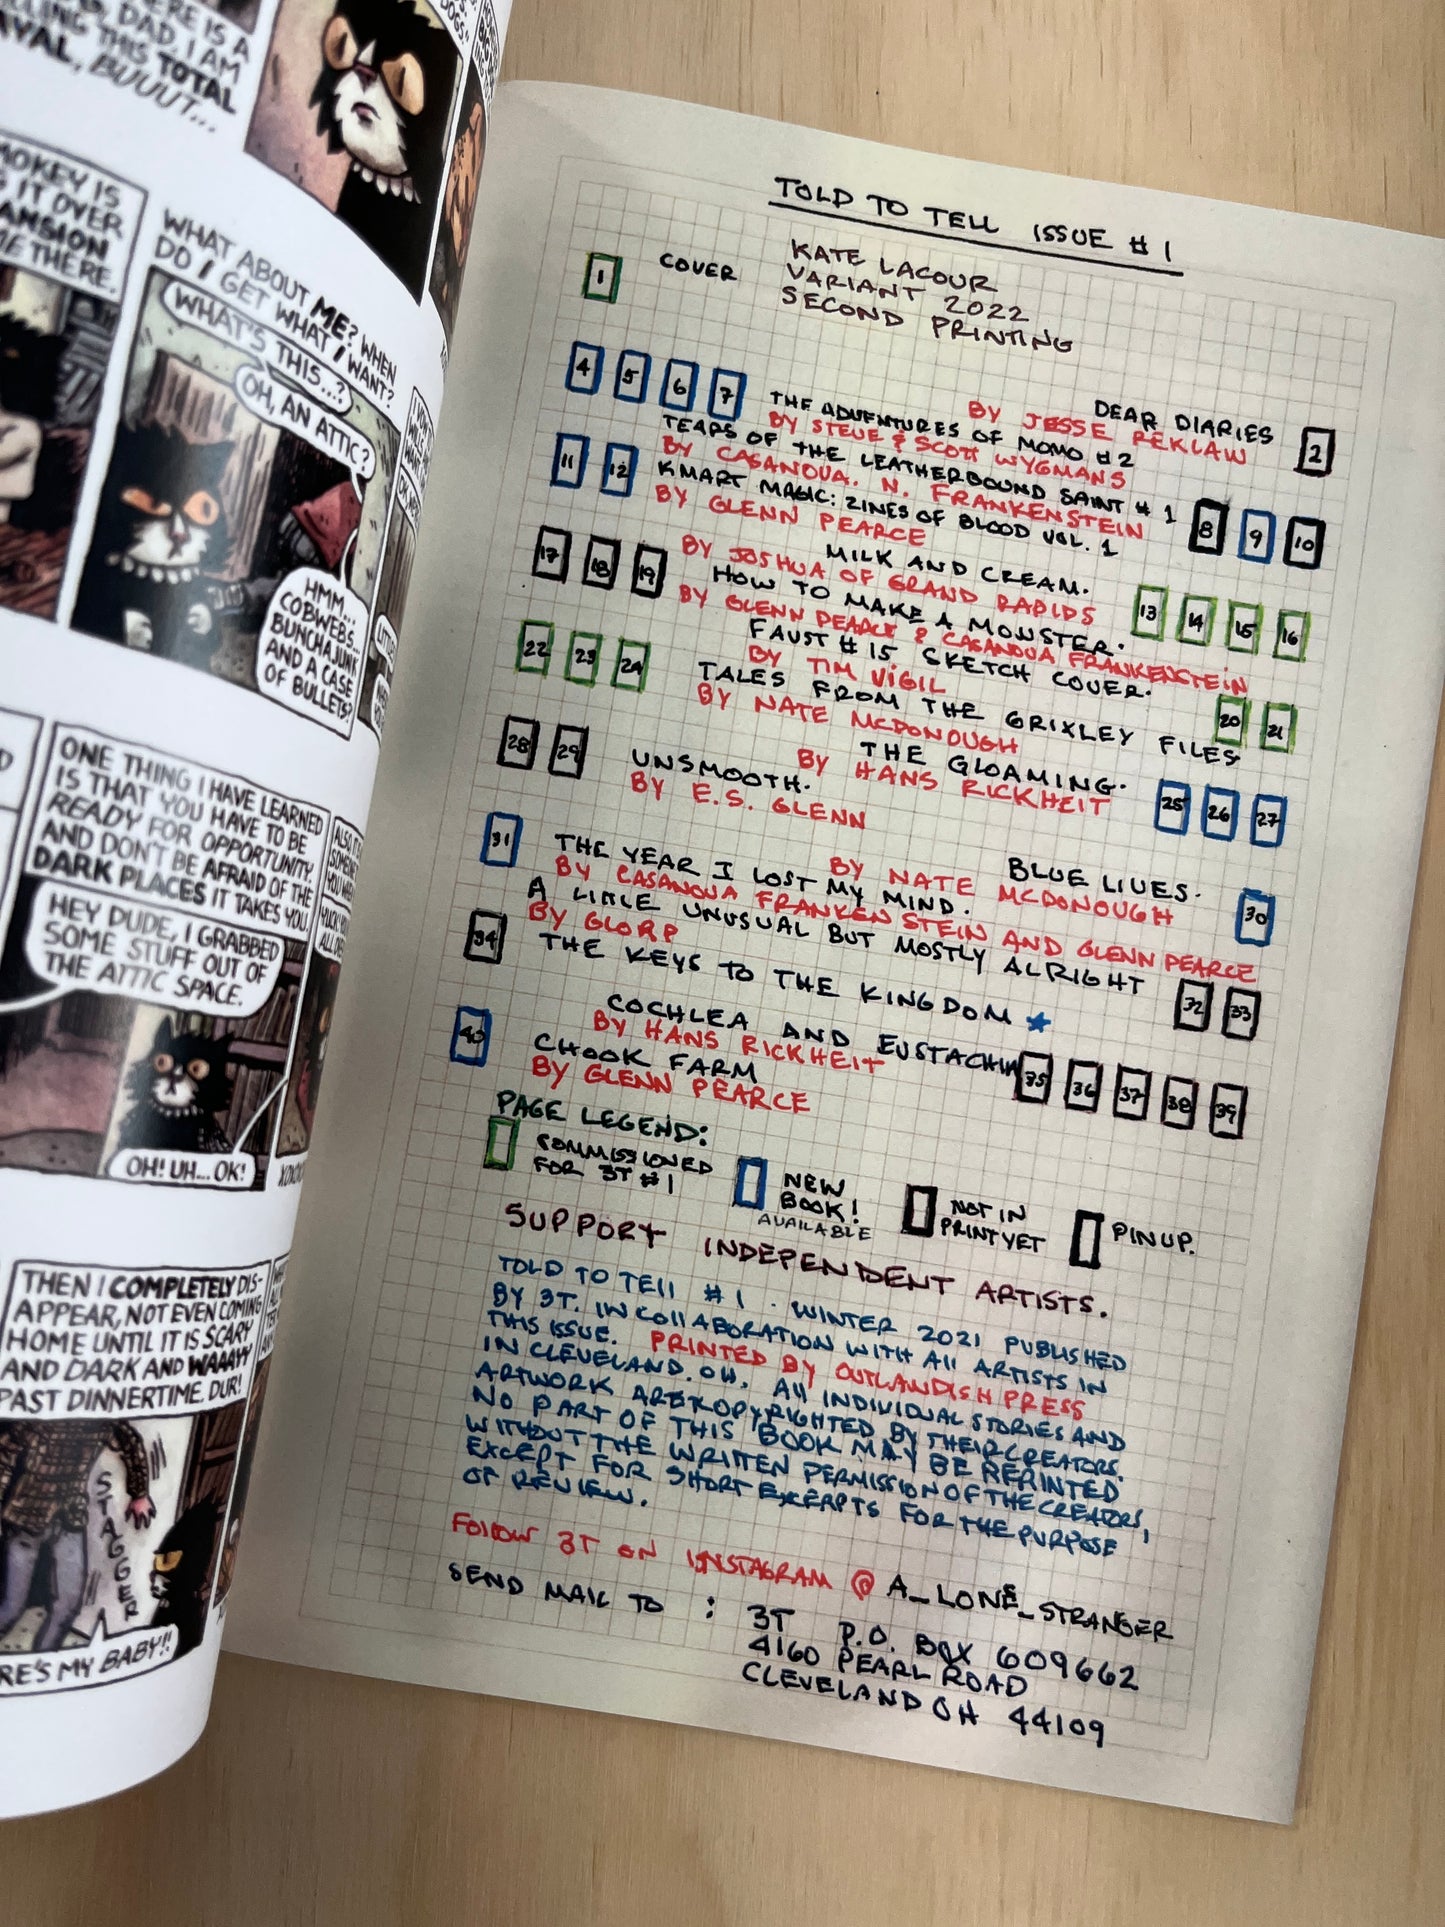 HERE IS A
, DAD. I AM
LLING THIS TOTAL
AYAL, BUUUT...
DOGS."
MOKEY IS
IT OVER
ANSION
ME THERE.
WHAT ABOUT ME? WHEN
DO I GET WHAT I WANT?
WHAT'S THIS...?
OH, AN ATTIC?
HMM...
COBWEBS...
BUNCHAJUNK
AND A CASE
OF BULLETS?
ONE THING I HAVE LEARNED
IS THAT YOU HAVE TO BE
READY FOR OPPORTUNITY
AND DON'T BE AFRAID OF THE
DARK PLACES IT TAKES YOU.
HEY DUDE, I GRABBED
SOME STUFF OUT OF
THE ATTIC SPACE.
OH! UH... OK!
THEN I COMPLETELY DIS-
APPEAR, NOT EVEN COMING
HOME UNTIL IT IS SCARY
AND DARK AND WAAAYY
PAST DINNERTIME. DUR!
STAGGER
RE'S MY BABY!!
TOLD TO TELL ISSUE #1
1 COVER KATE LACOUR
VARIANT 2022
SECOND PRINTING
DEAR DIARIES 2
BY JESSE REKLAW
4 5 6 7 THE ADVENTURES OF MOMO #2
BY STEVE & SCOTT WYGMANS
TEARS OF THE LEATHERBOUND SAINT #1 8 9 10
BY CASANOVA. N. FRANKENSTEIN
11 12 KMART MAGIC: ZINES OF BLOOD VOL. 1
BY GLENN PEARCE
MILK AND CREAM. 13 14 15 16
BY JOSHUA OF GRAND RAPIDS
17 18 19 HOW TO MAKE A MONSTER.
BY GLENN PEARCE & CASANOVA FRANKENSTEIN
FAUST #15 SKETCH COVER. 20 21
BY TIM VIGIL
22 23 24 TALES FROM THE GRIXLEY FILES
BY NATE MCDONOUGH
THE GLOAMING. 25 26 27
BY HANS RICKHEIT
28 29 UNSMOOTH.
BY E.S. GLENN
BLUE LIVES. 30
BY NATE MCDONOUGH
31 THE YEAR I LOST MY MIND.
BY CASANOVA FRANKENSTEIN AND GLENN PEARCE
A LITTLE UNUSUAL BUT MOSTLY ALRIGHT 32 33
BY GLORP
34 THE KEYS TO THE KINGDOM ★
COCHLEA AND EUSTACHIA 35 36 37 38 39
BY HANS RICKHEIT
40 CHOOK FARM
BY GLENN PEARCE
PAGE LEGEND:
COMMISSIONED
FOR 3T #1
NEW
BOOK!
AVAILABLE
NOT IN
PRINT YET
PINUP.
SUPPORT INDEPENDENT ARTISTS.
TOLD TO TELL #1 · WINTER 2021 PUBLISHED
BY 3T. IN COllABORATION WITH All ARTISTS IN
THIS ISSUE. PRINTED BY OUTLANDISH PRESS
IN CLEVELAND. OH. All INDIVIDUAL STORIES AND
ARTWORK ARE COPYRIGHTED BY THEIR CREATORS.
NO PART OF THIS BOOK MAY BE REPRINTED
WITHOUT THE WRITTEN PERMISSION OF THE CREATORS,
EXCEPT FOR SHORT EXCERPTS FOR THE PURPOSE
OF REVIEW.
FOLLOW 3T ON INSTAGRAM @ A_LONE_STRANGER
SEND MAIL TO : 3T P.O. BOX 609662
4160 PEARL ROAD
CLEVELAND OH 44109